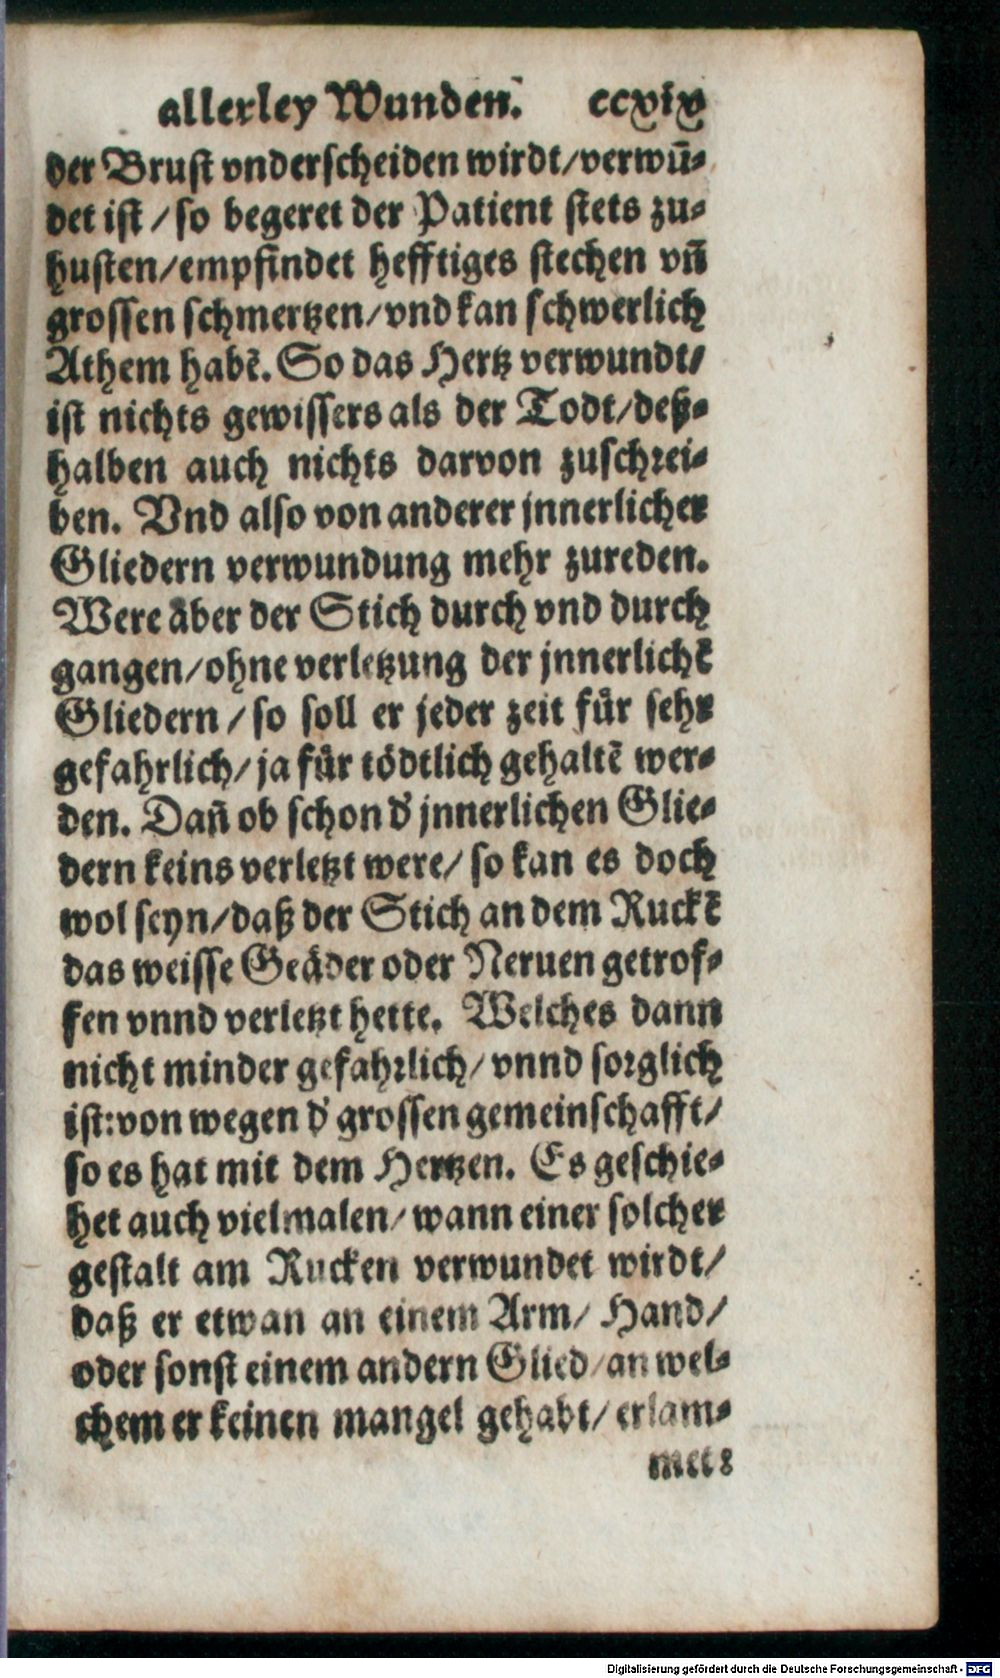 allerley Wunden. ccxix
der Brust vnderscheiden wirdt/verwũ-
det ist/so begeret der Patient stets zu-
husten/empfindet hefftiges stechen vñ
grossen schmertzen/vnd kan schwerlich
Athem habẽ. So das Hertz verwundt/
ist nichts gewissers als der Todt/deß-
halben auch nichts darvon zuschrei-
ben. Vnd also von anderer jnnerlicher
Gliedern verwundung mehr zureden.
Were aber der Stich durch vnd durch
gangen/ohne verletzung der jnnerlichẽ
Gliedern/so soll er jeder zeit fuͤr sehr
gefahrlich/ja fuͤr toͤdtlich gehaltẽ wer-
den. Dañ ob schon d' jnnerlichen Glie-
dern keins verletzt were/so kan es doch
wol seyn/daß der Stich an dem Ruckẽ
das weisse Geaͤder oder Neruen getrof-
fen vnnd verletzt hette. Welches dann
nicht minder gefahrlich/vnnd sorglich
ist:von wegen d' grossen gemeinschafft/
so es hat mit dem Hertzen. Es geschie-
het auch vielmalen/wann einer solcher
gestalt am Rucken verwundet wirdt/
daß er etwan an einem Arm/Hand/
oder sonst einem andern Glied/an wel-
chem er keinen mangel gehabt/erlam-
met:
Digitalisierung gefördert durch die Deutsche Forschungsgemeinschaft - DFG